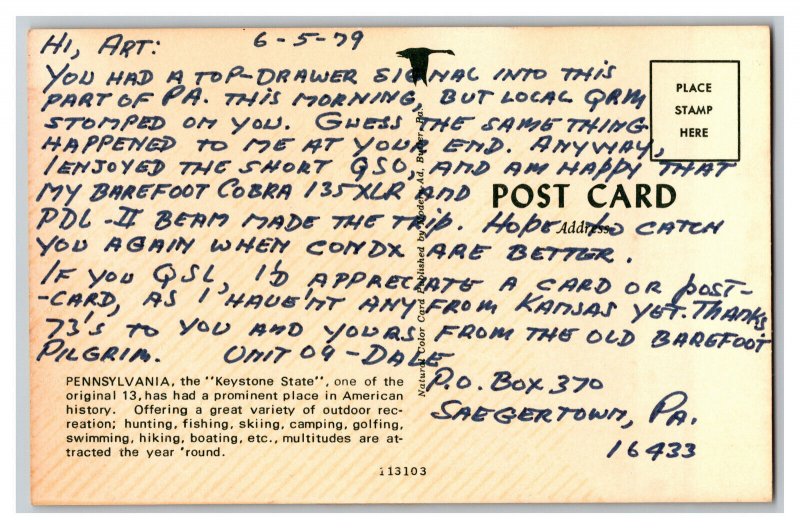 HI, ART: 6-5-79
YOU HAD A TOP-DRAWER SIGNAL INTO THIS
PART OF PA. THIS MORNING, BUT LOCAL QRM
STOMPED ON YOU. GUESS THE SAME THING
HAPPENED TO ME AT YOUR END. ANYWAY,
I ENJOYED THE SHORT QSO, AND AM HAPPY THAT
MY BAREFOOT COBRA 135XLR AND
PDL-II BEAM MADE THE TRIP. HOPE TO CATCH
YOU AGAIN WHEN CONDX ARE BETTER.
IF YOU QSL, I'D APPRECIATE A CARD OR POST-
-CARD, AS I HAVE'NT ANY FROM KANSAS YET. THANKS.
73'S TO YOU AND YOURS FROM THE OLD BAREFOOT
PILGRIM. UNIT 09-DALE
P.O. BOX 370
SAEGERTOWN, PA.
16433
PLACE
STAMP
HERE
POST CARD
Address
Natural Color Card Published by Modern Ad, Butler, Pa.
PENNSYLVANIA, the "Keystone State", one of the
original 13, has had a prominent place in American
history. Offering a great variety of outdoor rec-
reation; hunting, fishing, skiing, camping, golfing,
swimming, hiking, boating, etc., multitudes are at-
tracted the year 'round.
113103